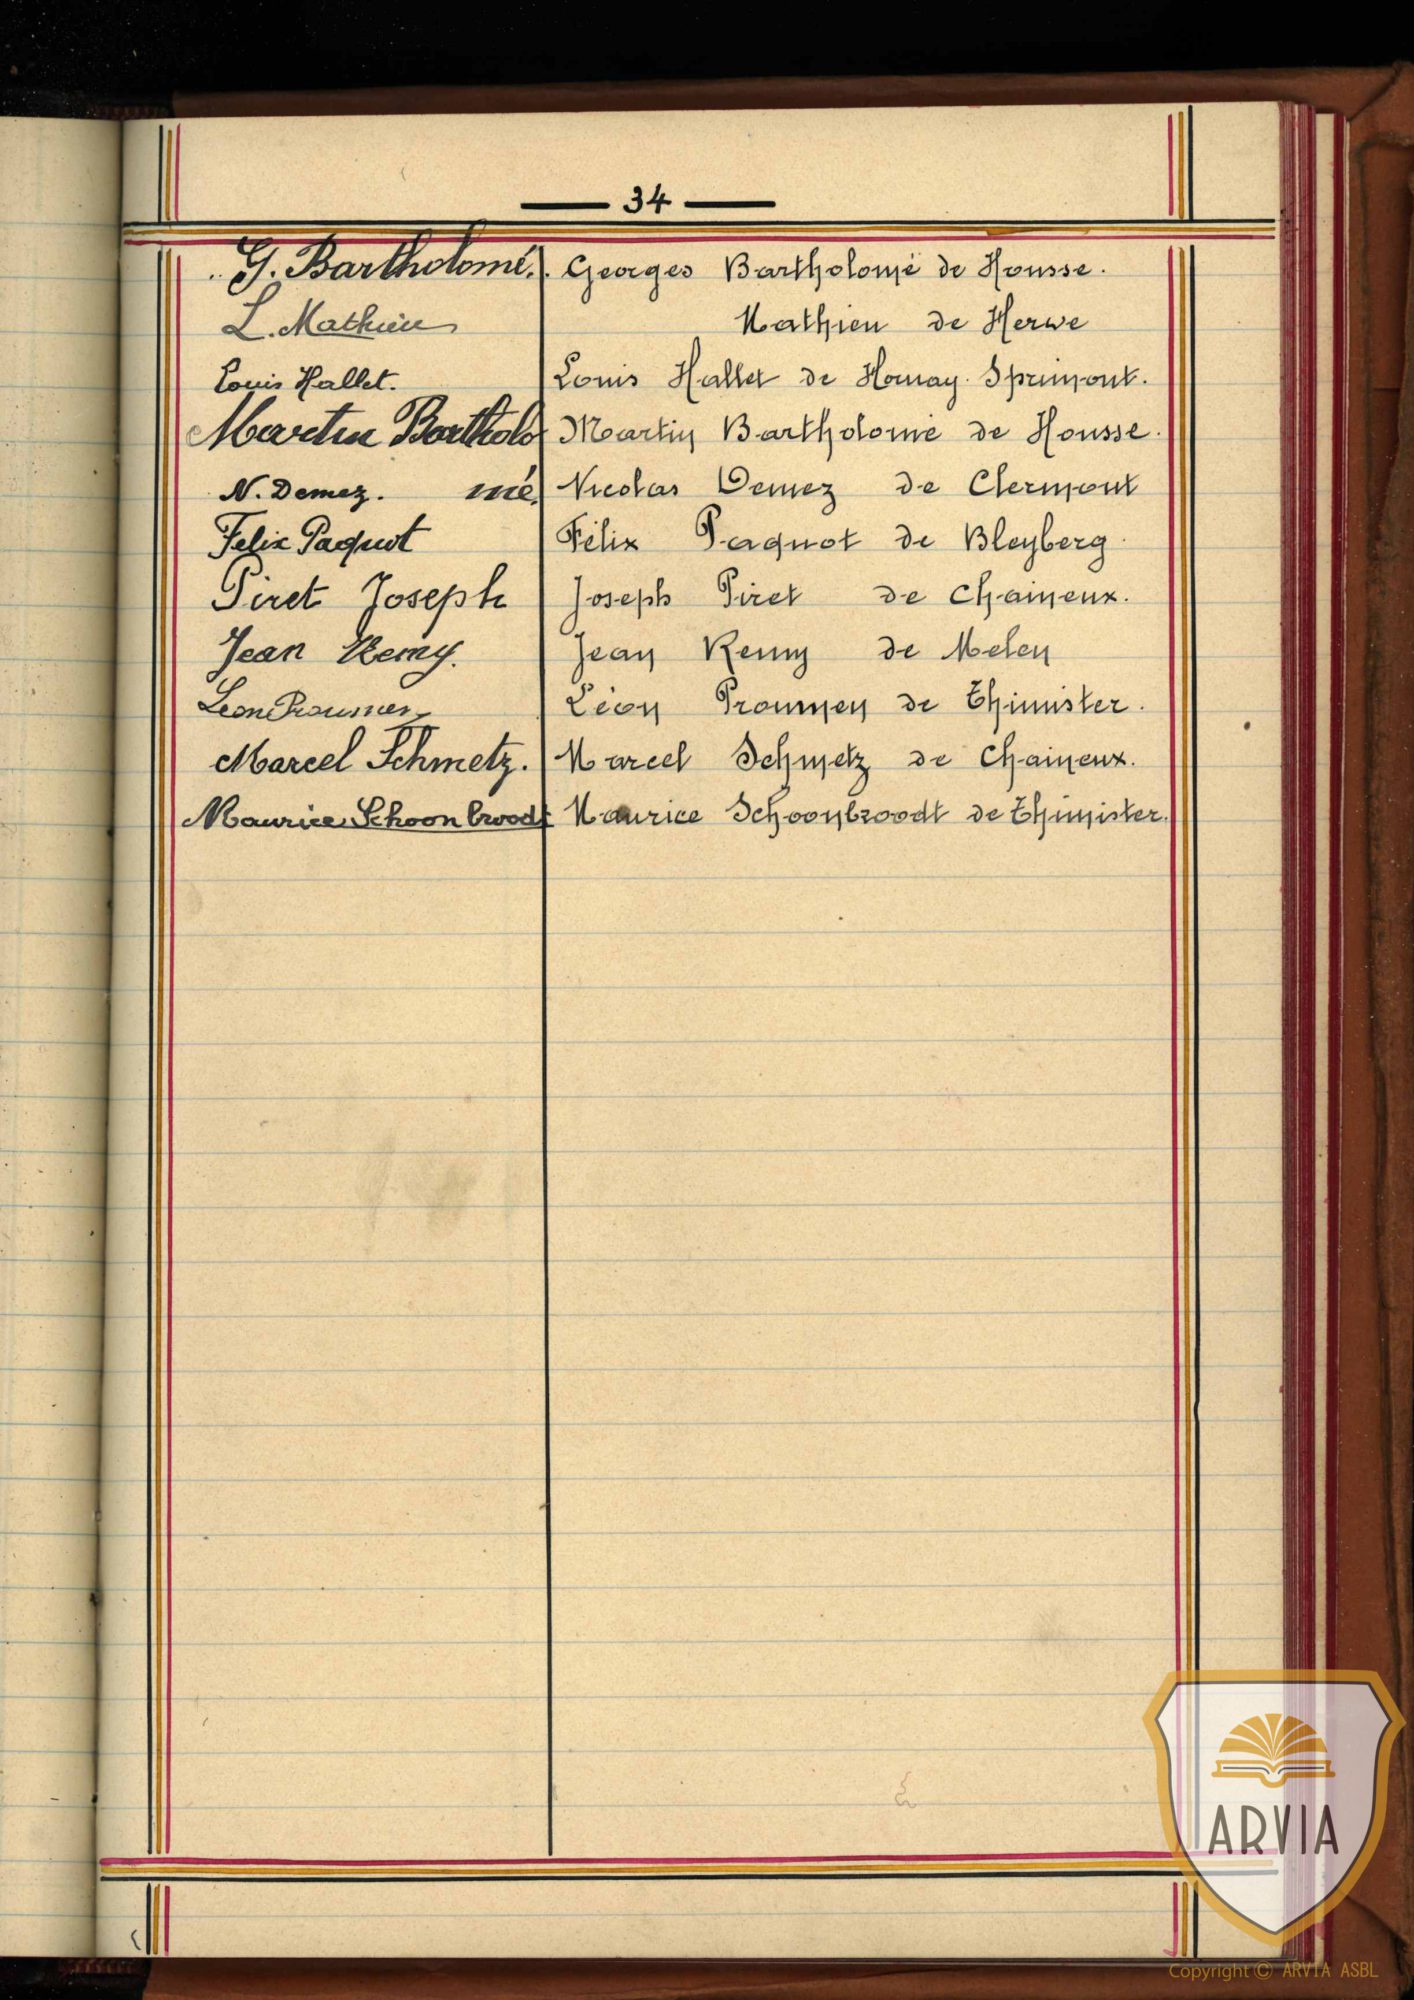 — 34 —
G. Bartholomé. Georges Bartholomé de Housse.
L. Mathieu Mathieu de Herve
Louis Hallet. Louis Hallet de Hornay. Sprimont.
Martin Bartholo Martin Bartholomé de Housse.
N. Demez. mé. Nicolas Demez de Clermont
Felix Paquot Félix Paquot de Bleyberg.
Piret Joseph Joseph Piret de Chaineux.
Jean Remy. Jean Remy de Melen
Leon Proumen Léon Proumen de Thimister.
Marcel Schmetz. Marcel Schmetz de Chaineux.
Maurice Schoonbroodt Maurice Schoonbroodt de Thimister.
ARVIA
Copyright © ARVIA ASBL